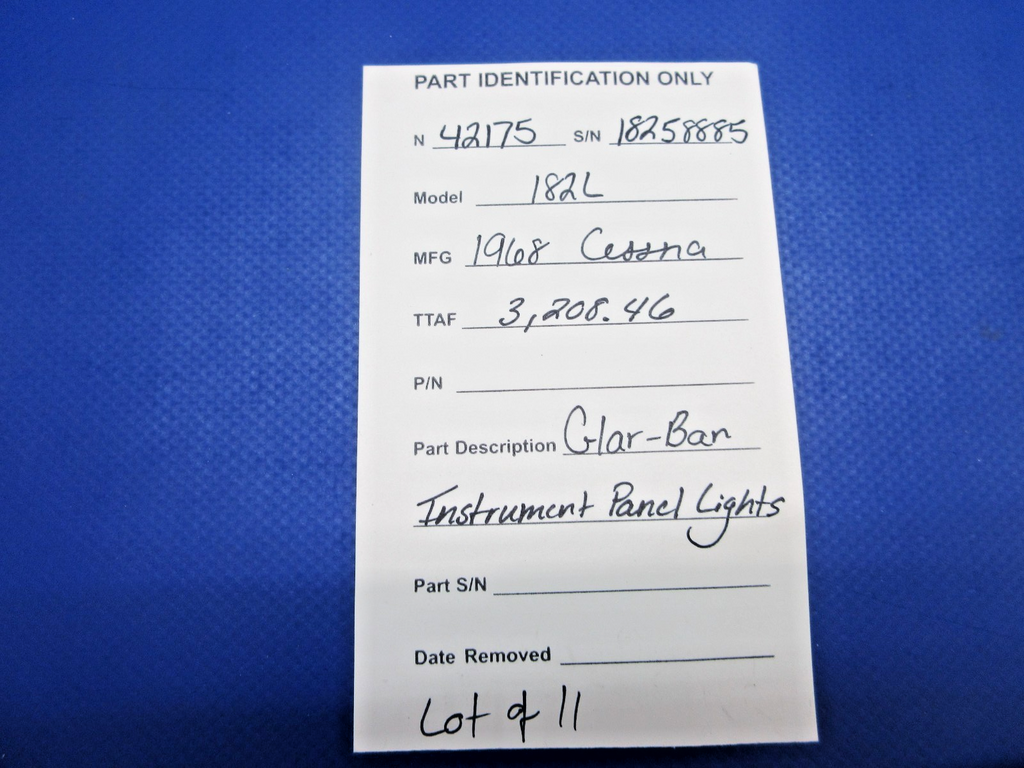 PART IDENTIFICATION ONLY
N 42175 S/N 18258885
Model 182L
MFG 1968 Cessna
TTAF 3,208.46
P/N
Part Description Glar-Ban
Instrument Panel Lights
Part S/N
Date Removed
Lot of 11